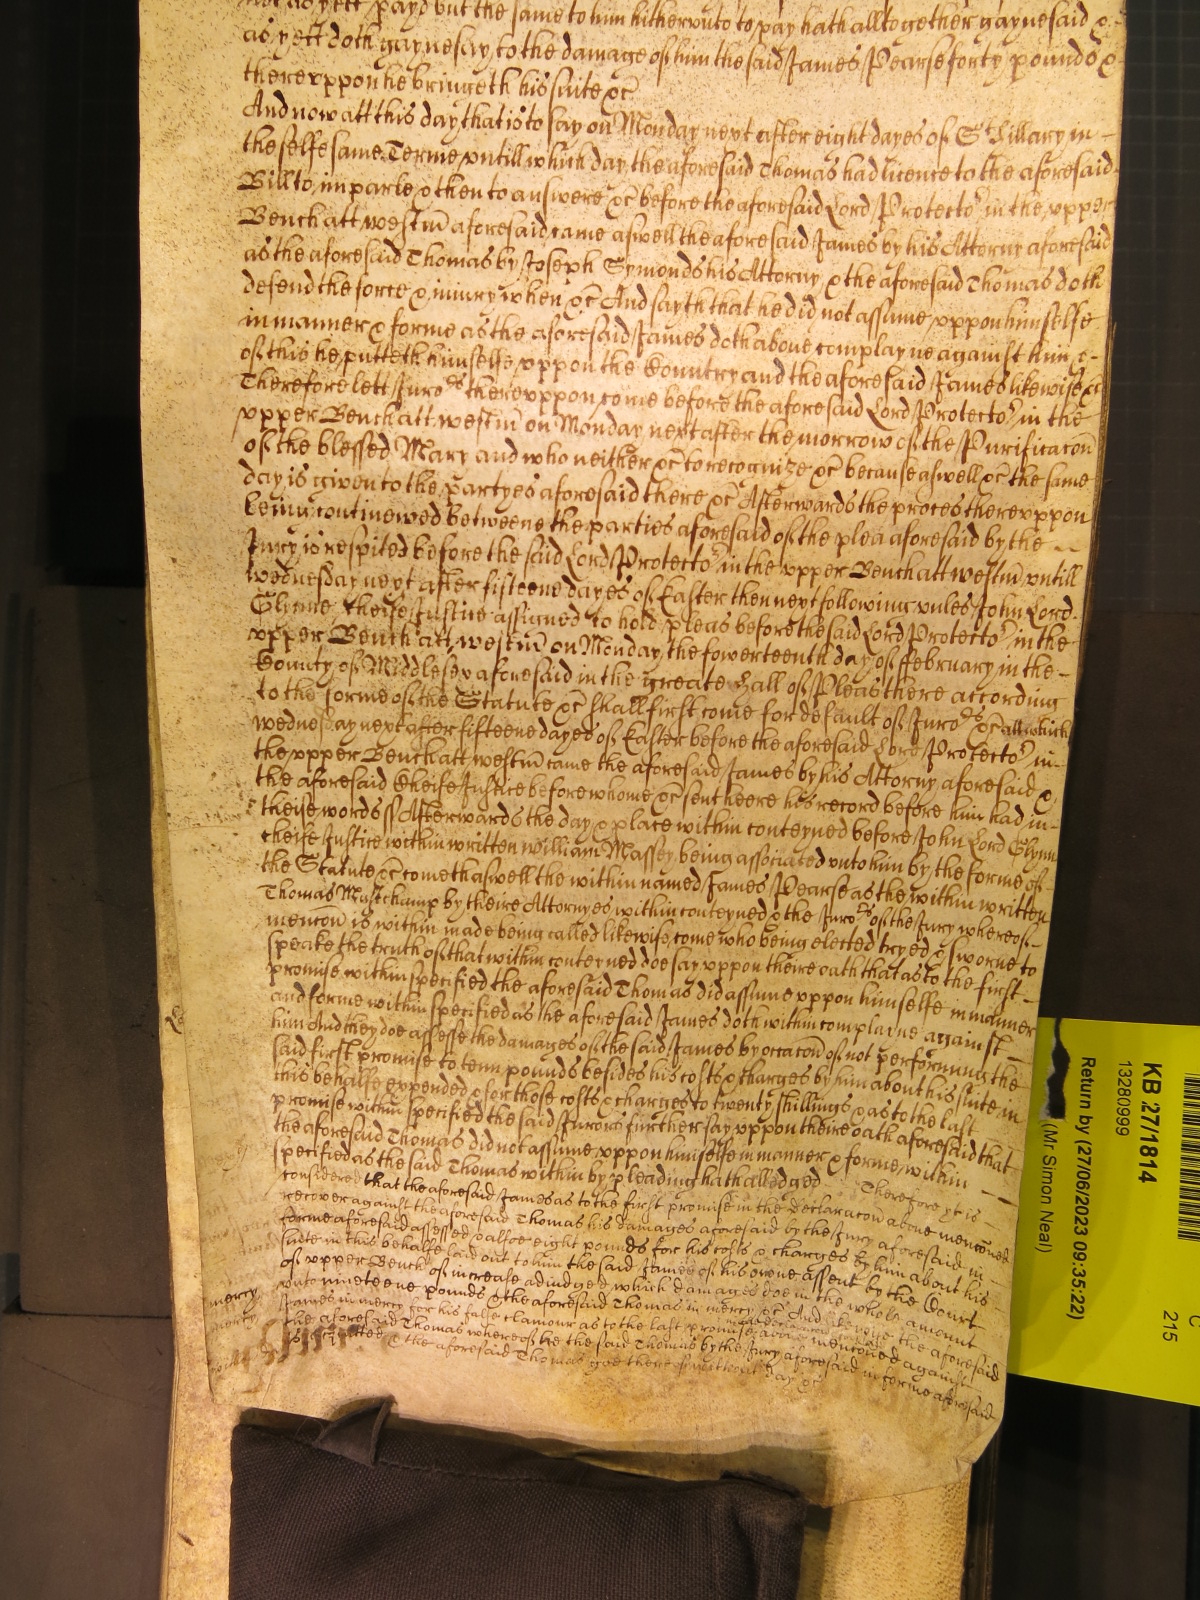 not as yett payd but the same to him hitherunto to pay hath alltogether gaynesaid &
as yett doth gaynesay to the damage of him the said James Pearse forty pounds &
thereuppon he bringeth his suite &c
And now att this day that is to say on Monday next after eight dayes of St Hillary in
the selfe same Terme untill which day the aforesaid Thomas had licence to the aforesaid
Bill to imparle & then to answere &c before the aforesaid Lord Protector in the upper
Bench att westm aforesaid came aswell the aforesaid James by his Attorny aforesaid
as the aforesaid Thomas by Joseph Symonds his Attorny & the aforesaid Thomas doth
defend the force & iniury when &c And sayth that he did not assume uppon himselfe
in manner & forme as the aforesaid James doth above complayne against him &
of this he putteth himselfe uppon the Country and the aforesaid James likewise &c
Therefore lett Jurors thereuppon come before the aforesaid Lord Protector in the
upper Bench att westm on Monday next after the morrow of the Purificacon
of the blessed Mary and who neither &c to recognize &c because aswell &c the same
day is given to the partyes aforesaid there &c Afterwards the proces thereuppon
being continewed betweene the parties aforesaid of the plea aforesaid by the
Jury is respited before the said Lord Protector in the upper Bench att westm untill
wednesday next after fifteene dayes of Easter then next following unles John Lord
Glynne Cheife Justice assigned to hold pleas before the said Lord Protector in the
upper Bench att westm on Monday the fowerteenth day of ffebruary in the
County of Middlesex aforesaid in the greate Hall of Pleas there according
to the forme of the Statute &c shall first come for default of Jurors &c att which
wednesday next after fifteene dayes of Easter before the aforesaid Lord Protector in
the upper Bench att westm came the aforesaid James by his Attorny aforesaid &
the aforesaid Cheife Justice before whome &c sent heere his record before him had in
theise words ss Afterwards the day & place within conteyned before John Lord Glynn
cheife Justice within written William Massey being associated unto him by the forme of
the Statute &c cometh aswell the within named James Pearse as the within written
Thomas Muschamp by theire Attornyes within conteyned & the Jurors of the Jury whereof
mencon is within made being called likewise come who being elected tryed & sworne to
speake the truth of that within conteyned doe say uppon theire oath that as to the first
promise within specified the aforesaid Thomas did assume uppon himselfe in manner
and forme within specified as the aforesaid James doth within complayne against
him And they doe assesse the damages of the said James by occacon of not performing the
said first promise to tenn pounds besides his costs & charges by him about his suite in
this behalfe expended & for those costs & charges to twenty shillings & as to the last
promise within specified the said Jurors further say uppon theire oath aforesaid that
the aforesaid Thomas did not assume uppon himselfe in manner & forme within
specified as the said Thomas within by pleading hath alledged Therefore yt is
considered that the aforesaid James as to the first promise in the declaracon above menconed
recover against the aforesaid Thomas his damages aforesaid by the Jury aforesaid in
forme aforesaid assessed & alsoe eight pounds for his costs & charges by him about his
suite in this behalfe said out to him the said James of his owne assent by the Court
of upper Bench of increase adiudged which damages doe in the whole amount
unto nineteene pounds & the aforesaid Thomas in mercy &c And likewise the aforesaid
mercy
James in mercy for his false clamour as to the last promise above menconed against
mercy
the aforesaid Thomas whereof he the said Thomas by the Jury aforesaid in forme aforesaid
is acquitted & the aforesaid Thomas goe thereof without day &c
KB 27/1814
13280999
Return by (27/06/2023 09:35:22)
(Mr Simon Neal)
C
215